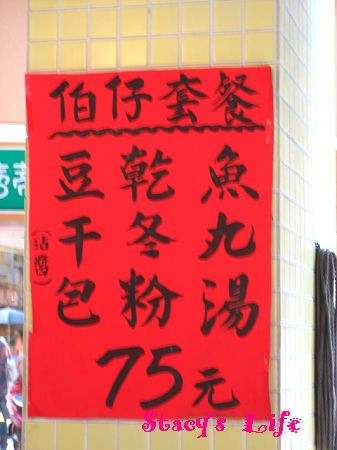 伯仔套餐
魚丸湯
乾冬粉
豆干包
(沾醬)
75元
Stacy's Life